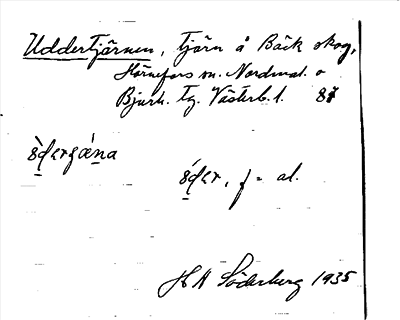 Uddertjärnen, tjärn å Bäck skog,
Hörnefors sn. Nordmal. o
Bjurh. tg. Västerb. l. 87
ɞ̀ḍərʂǽna
ɞ́ḍər, f = al.
H A Söderberg 1935